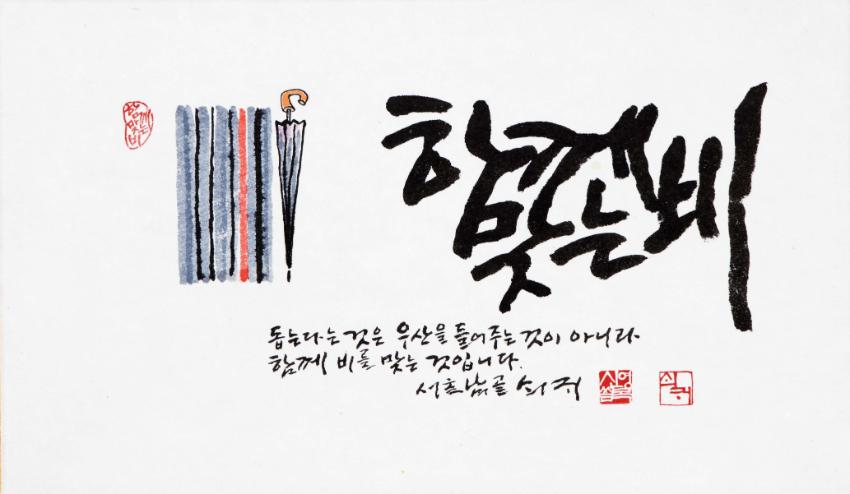 함께
맞는 비
돕는다는 것은 우산을 들어주는 것이 아니라
함께 비를 맞는 것입니다.
쇠귀